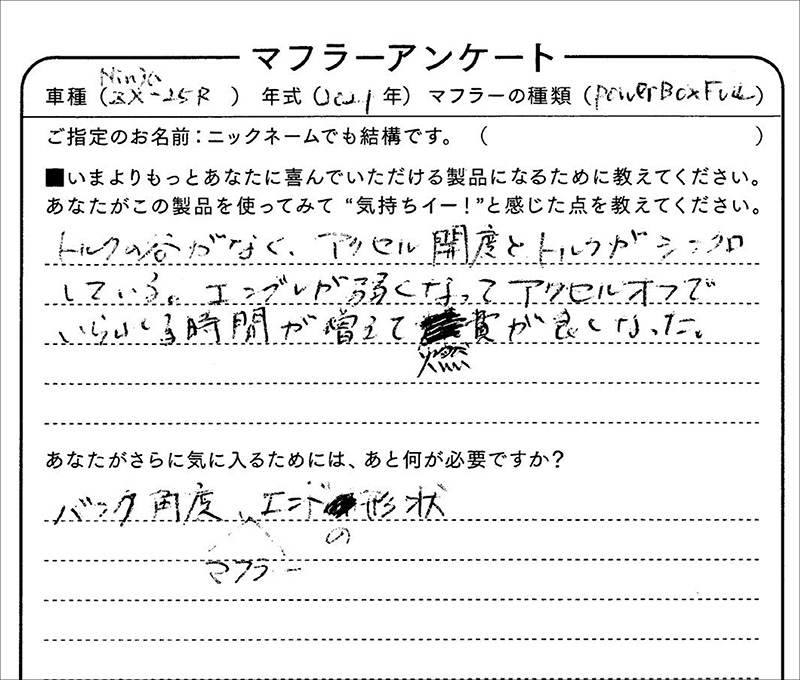 マフラーアンケート
車種（Ninja ZX-25R）年式（2021年）マフラーの種類（PowerBoxFull）
ご指定のお名前：ニックネームでも結構です。（　）
■いまよりもっとあなたに喜んでいただける製品になるために教えてください。
あなたがこの製品を使ってみて“気持ちイー！”と感じた点を教えてください。
トルクの谷がなく、アクセル開度とトルクがシンクロ
している。エンブレが弱くなってアクセルオフで
いられる時間が増えて燃費が良くなった。
あなたがさらに気に入るためには、あと何が必要ですか？
バンク角度、マフラーエンドの形状